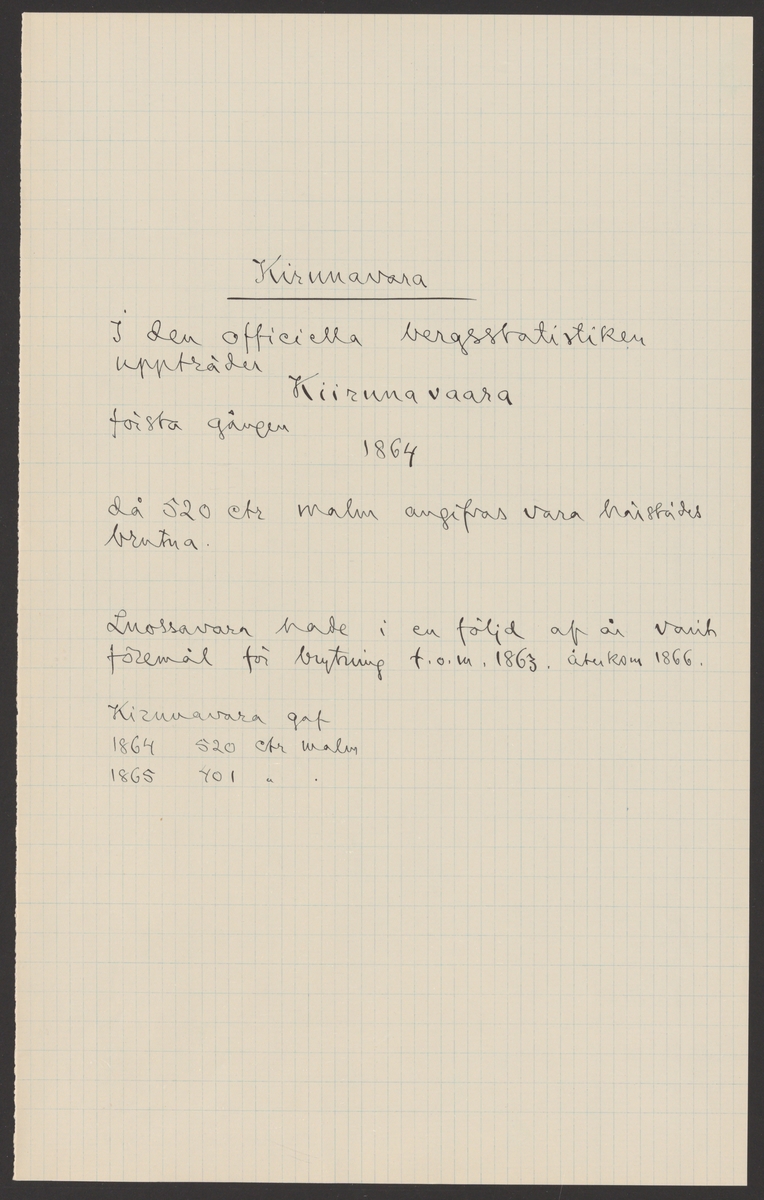 Kirunavara
I den officiella bergsstatistiken
uppträder
Kiirunavaara
första gången
1864
då 520 ctr malm angifvas vara härstädes
brutna.
Luossavara hade i en följd af år varit
föremål för brytning t.o.m. 1863. återkom 1866.
Kirunavara gaf
1864 520 ctr malm
1865 401 " "